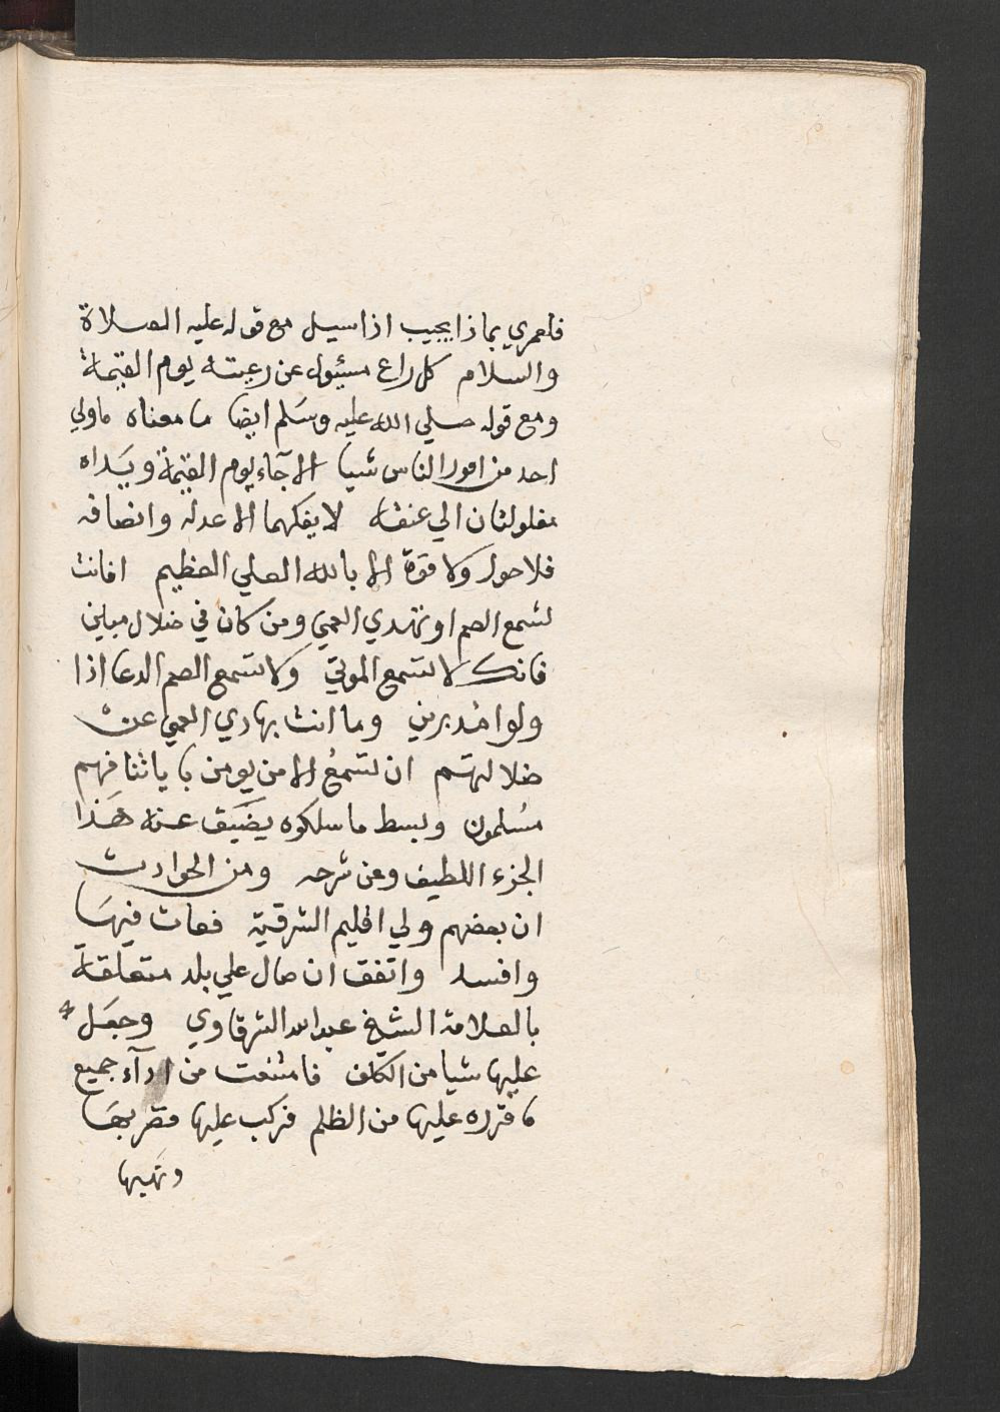 فلعمري بماذا يجيب اذا سيل مع قوله عليه الصلاة
والسلام كل راع مسئول عن رعيته يوم القيمة
ومع قوله صلي الله عليه وسلم ايضا ما معناه ماولي
احد من امور الناس شيا الا جآء يوم القيمة ويداه
مغلولتان الي عنقه لا يفكهما الا عدله وانصافه
فلاحول ولا قوة الا بالله العلي العظيم افانت
تسمع الصم او تهدي العمي ومن كان في ضلال مبين
فانك لا تسمع الموتي ولا تسمع الصم الدعا اذا
ولوا مدبرين وما انت بهادي العمي عن
ضلالتهم ان تسمع الا من يومن باياتنا فهم
مسلمون وبسط ما سلكوه يضيق عنه هذا
الجزء اللطيف وعن شرحه ومن الحوادث
ان بعضهم ولي اقليم الشرقية فعاث فيها
وافسد واتفق ان مال علي بلد متعلقة
بالعلامة الشيخ عبدالله الشرقاوي وجعل
عليها شيا من الكلف فامتنعت من ادآء جميع
ما قرره عليها من الظلم فركب عليها فضربها
ونهبها